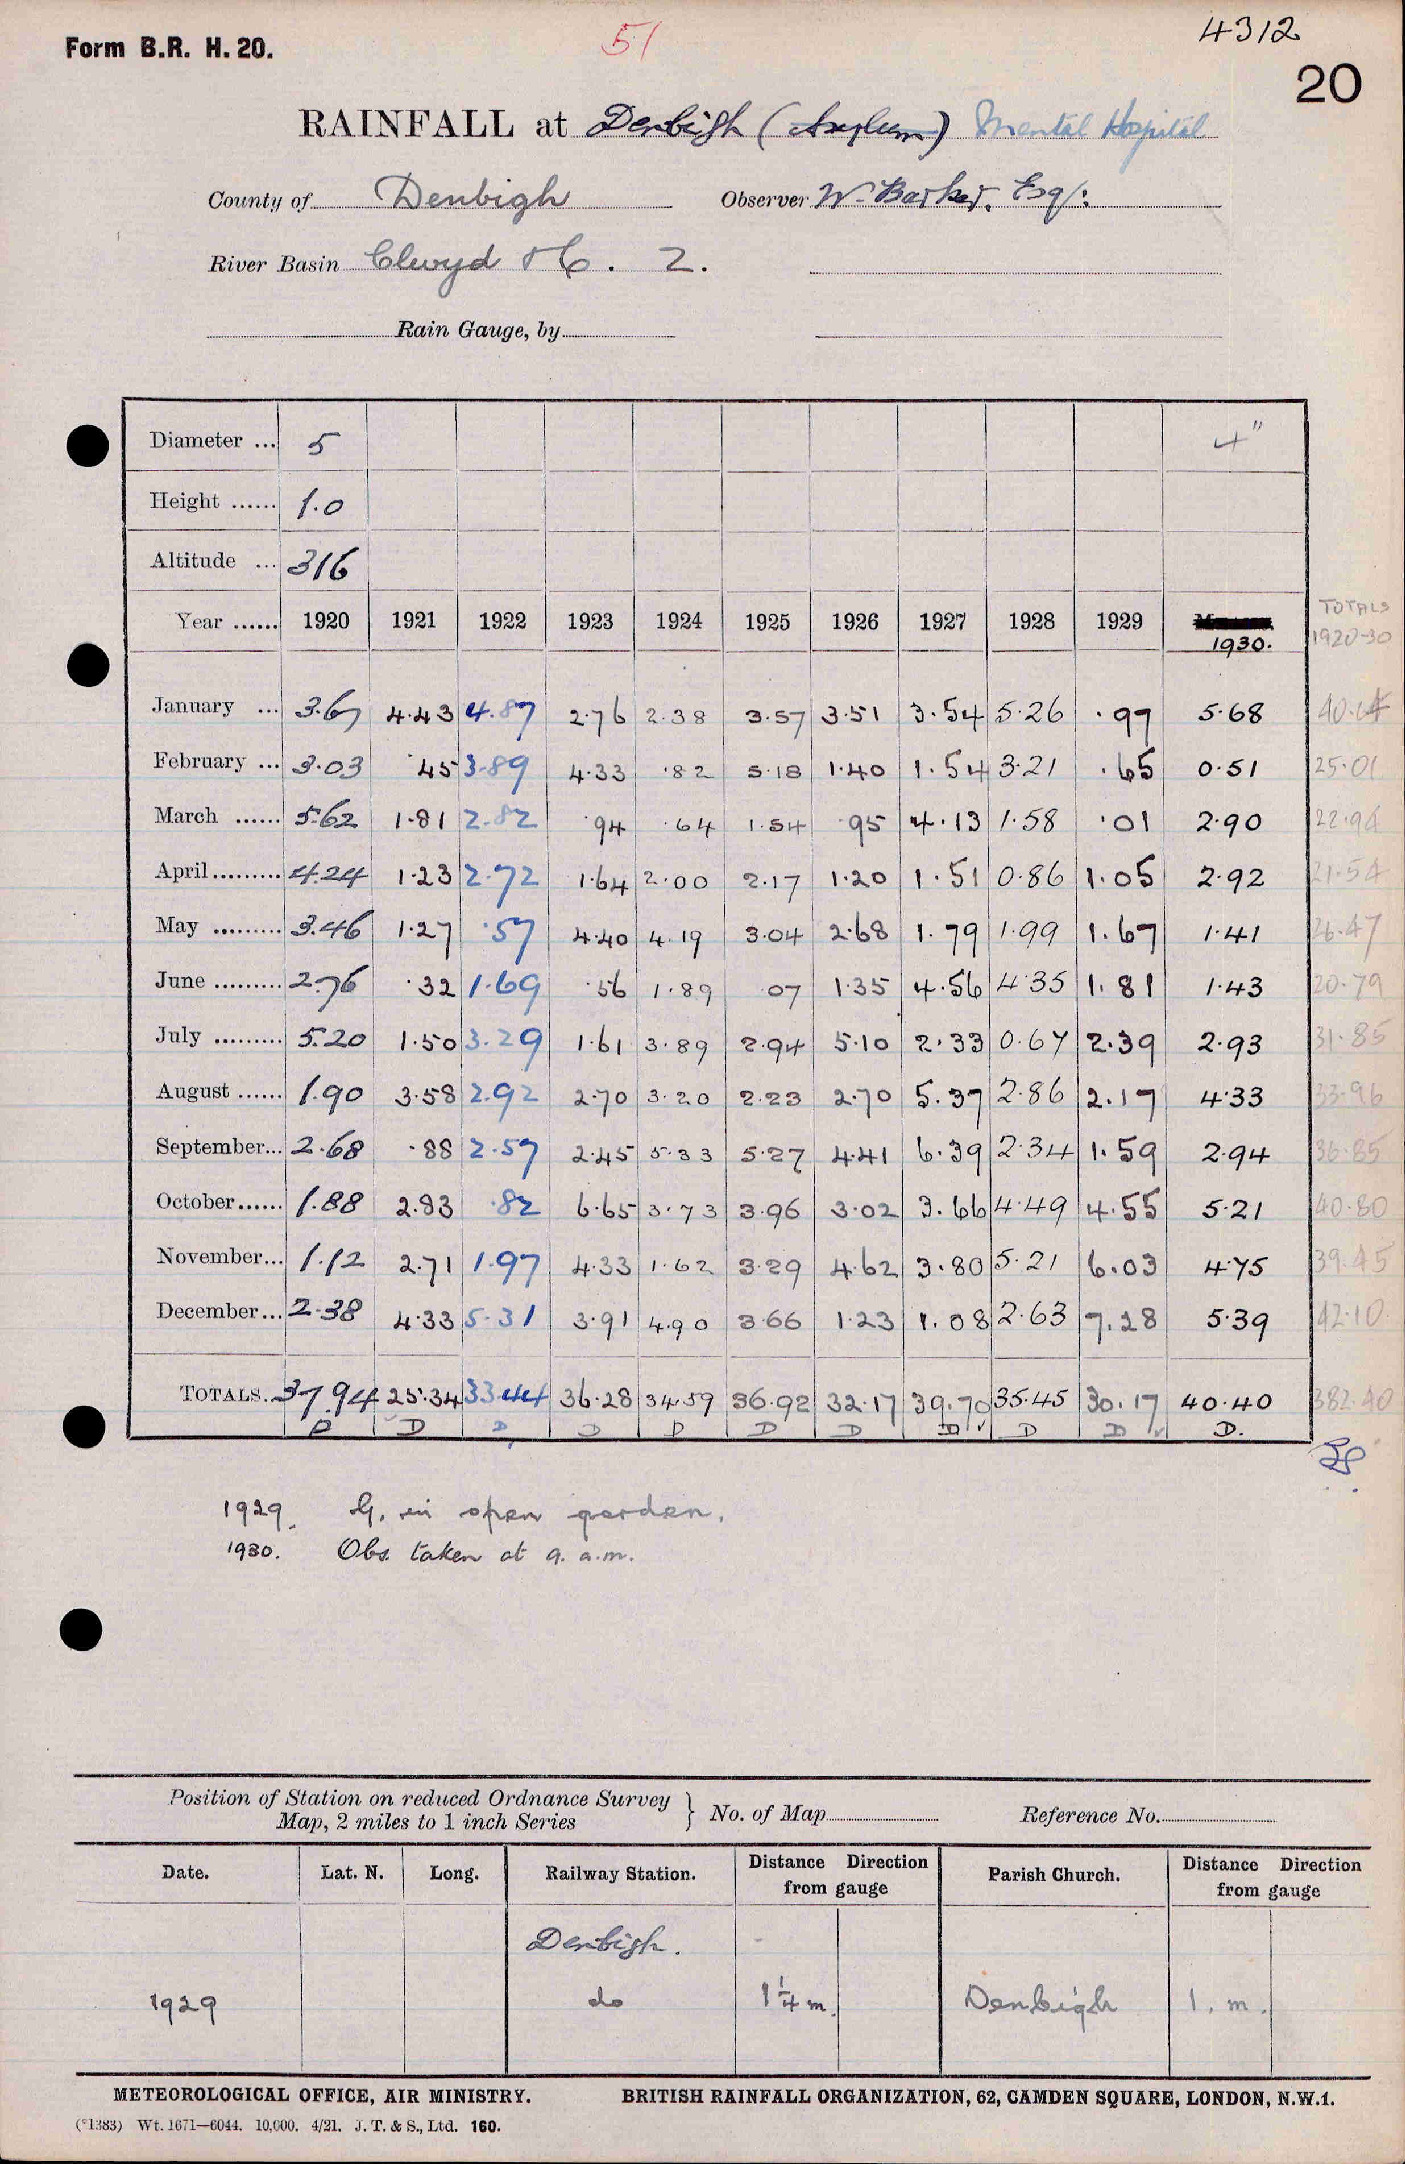 Form B.R. H. 20. 51 4312
20
RAINFALL at Denbigh (Asylum) Mental Hospital
County of Denbigh Observer W. Barker. Esq:
River Basin Clwyd &c. 2.
Rain Gauge, by
Diameter ... 5 4"
Height ...... 1.0
Altitude ... 316
Year ...... 1920 1921 1922 1923 1924 1925 1926 1927 1928 1929 1930. TOTALS 1920-30
January ... 3.67 4.43 4.87 2.76 2.38 3.57 3.51 3.54 5.26 .97 5.68 40.64
February ... 3.03 .45 3.89 4.33 .82 5.18 1.40 1.54 3.21 .65 0.51 25.01
March ...... 5.62 1.81 2.82 .94 .64 1.54 .95 4.13 1.58 .01 2.90 22.94
April ......... 4.24 1.23 2.72 1.64 2.00 2.17 1.20 1.51 0.86 1.05 2.92 21.54
May ......... 3.46 1.27 .57 4.40 4.19 3.04 2.68 1.79 1.99 1.67 1.41 26.47
June ......... 2.76 .32 1.69 .56 1.89 .07 1.35 4.56 4.35 1.81 1.43 20.79
July ......... 5.20 1.50 3.29 1.61 3.89 2.94 5.10 2.33 0.67 2.39 2.93 31.85
August ...... 1.90 3.58 2.92 2.70 3.20 2.23 2.70 5.37 2.86 2.17 4.33 33.96
September... 2.68 .88 2.57 2.45 5.33 5.27 4.41 6.39 2.34 1.59 2.94 36.85
October...... 1.88 2.83 .82 6.65 3.73 3.96 3.02 3.66 4.49 4.55 5.21 40.80
November... 1.12 2.71 1.97 4.33 1.62 3.29 4.62 3.80 5.21 6.03 4.75 39.45
December... 2.38 4.33 5.31 3.91 4.90 3.66 1.23 1.08 2.63 7.28 5.39 42.10
TOTALS... 37.94 25.34 33.44 36.28 34.59 36.92 32.17 39.70 35.45 30.17 40.40 382.40
D D D D D D D D D D D.
1929. G. in open garden.
1930. Obs. taken at 9. a.m.
Position of Station on reduced Ordnance Survey
Map, 2 miles to 1 inch Series } No. of Map Reference No.
Date. Lat. N. Long. Railway Station. Distance Direction from gauge Parish Church. Distance Direction from gauge
Denbigh.
1929 do 1¼ m. Denbigh 1. m.
METEOROLOGICAL OFFICE, AIR MINISTRY. BRITISH RAINFALL ORGANIZATION, 62, CAMDEN SQUARE, LONDON, N.W.1.
(*1383) Wt. 1671—6044. 10,000. 4/21. J. T. & S., Ltd. 160.